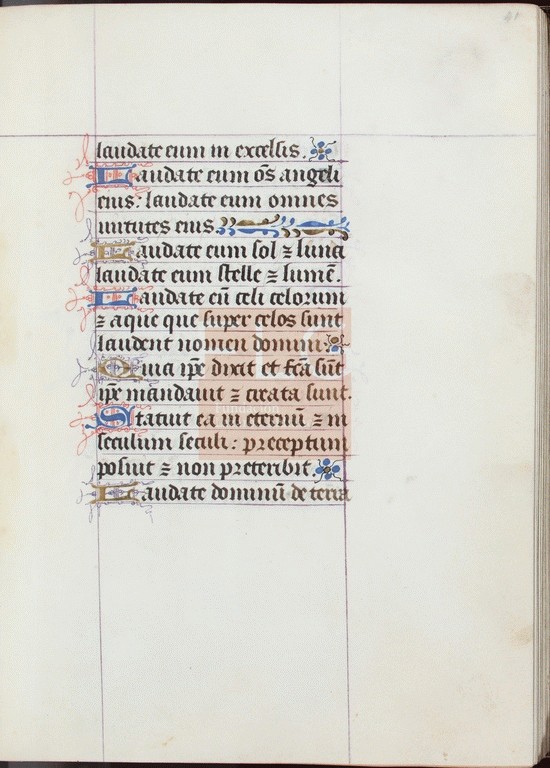 41
laudate eum in excelsis.
Laudate eum om̄s angeli
eius: laudate eum omnes
uirtutes eius
Laudate eum sol ⁊ luna
laudate eum stelle ⁊ lumē.
Laudate eū celi celorum
⁊ aque que super celos sunt
laudent nomen domini
Quia ip̄e dixit et fc̄a sūt
ip̄e mandauit ⁊ creata sunt.
Statuit ea in eternū ⁊ in
seculum seculi: preceptum
posuit ⁊ non preteribit.
Laudate dominū de terra